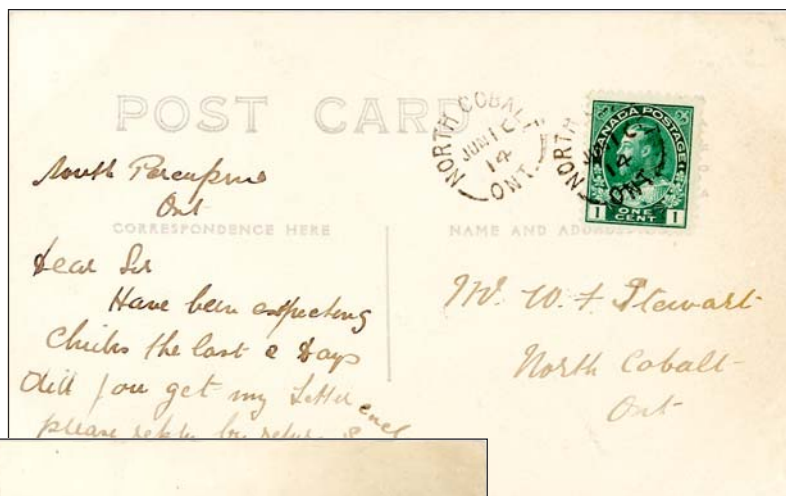 POST CARD
NORTH COBALT
JUN 15
14
ONT.
NORTH
14
ONT
CANADA POSTAGE
1 ONE CENT 1
South Porcupine
Ont
CORRESPONDENCE HERE
NAME AND
Dear Sir
Have been expecting
the last 2 days
did you get my Letter
please reply by return
Mr. W. F. Stewart
North Cobalt
Ont